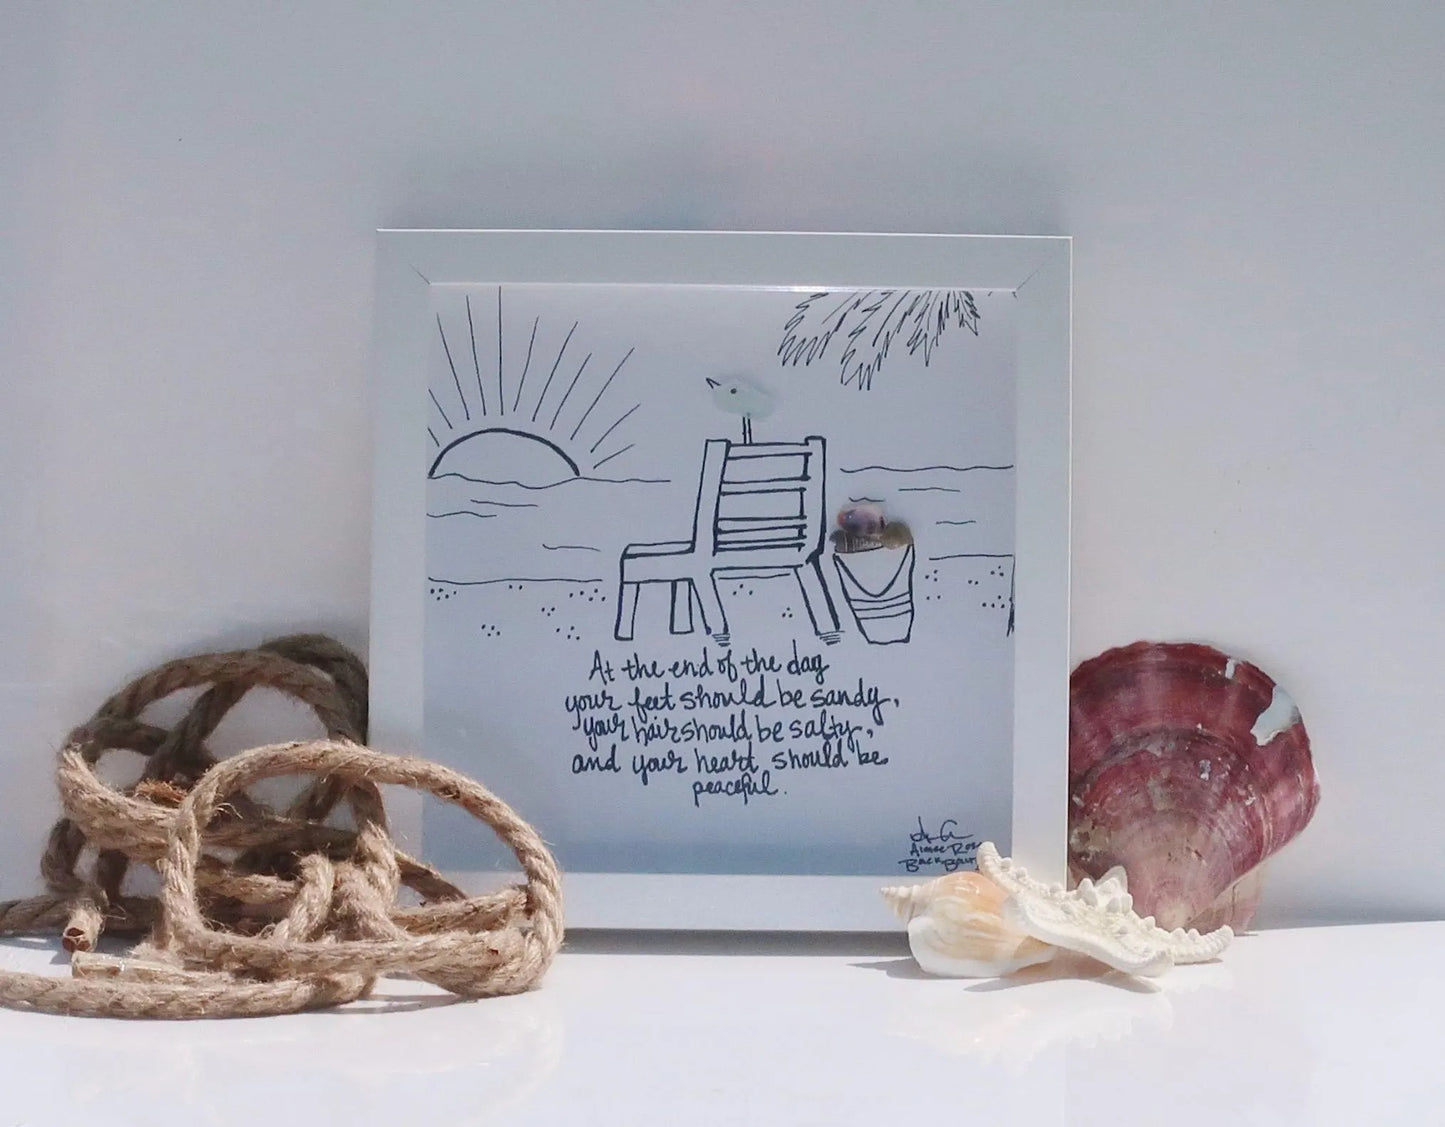 At the end of the day
your feet should be sandy,
your hair should be salty,
and your heart should be
peaceful.
Aimee